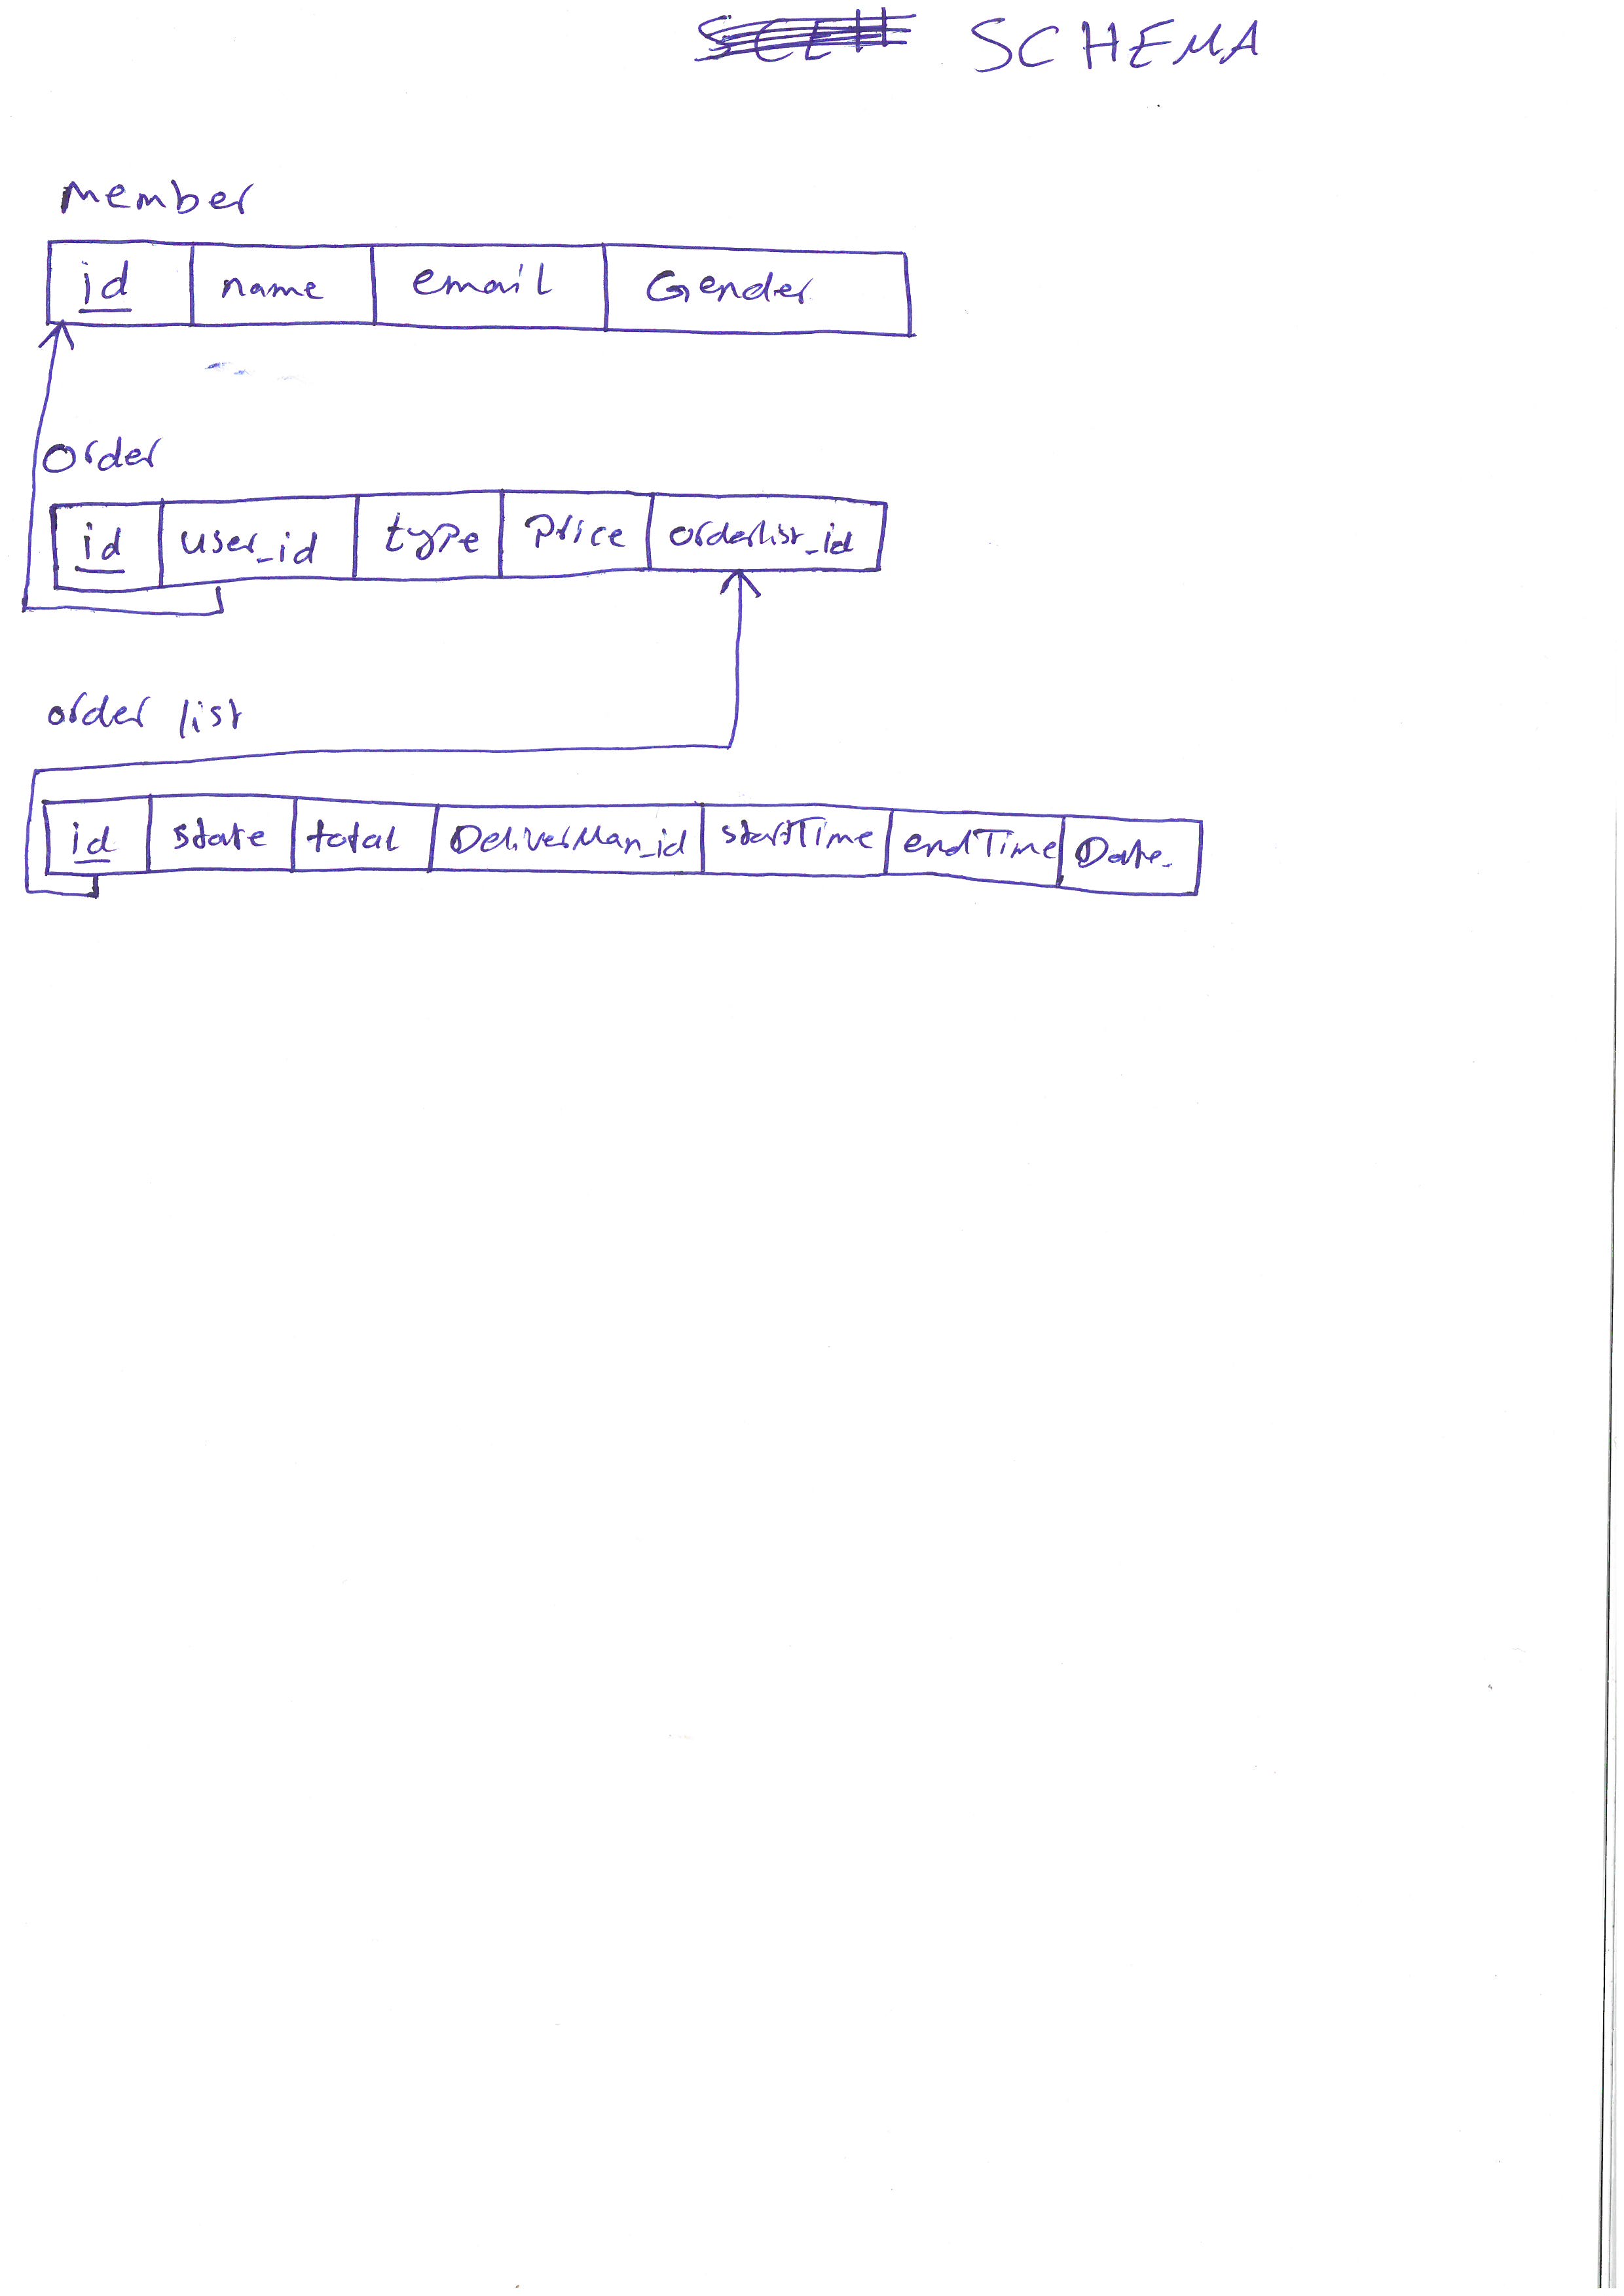 SCHEMA
Member
id name email Gender
Order
id user_id type Price orderlist_id
order list
id state total DeliverMan_id startTime endTime Date